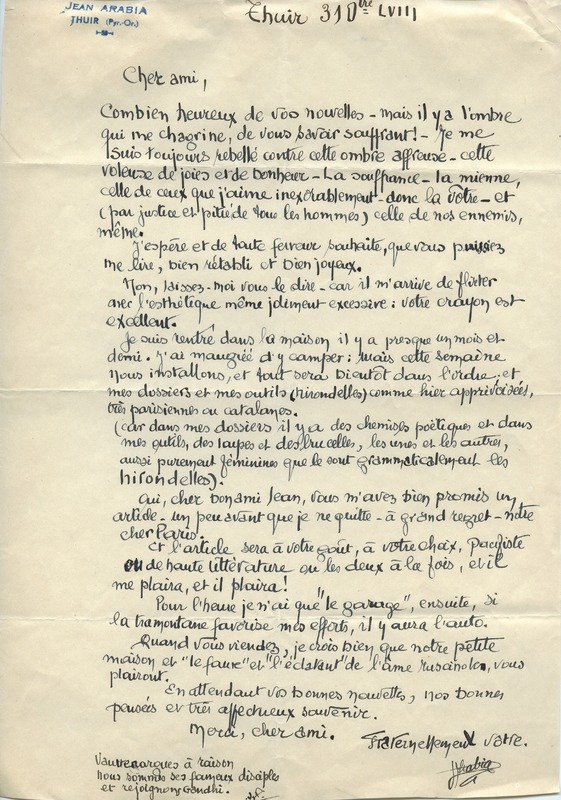 JEAN ARABIA
THUIR (Pyr.-Or.)
Thuir 31 Dbre LVIII
Cher ami,
Combien heureux de vos nouvelles - mais il y a l'ombre
qui me chagrine, de vous savoir souffrant! - Je me
suis toujours rebellé contre cette ombre affreuse - cette
voleuse de joies et de bonheur - La souffrance - la mienne,
celle de ceux que j'aime inexorablement - donc la vôtre - et
(par justice et pitié de tous les hommes) celle de nos ennemis,
même.
J'espère et de toute ferveur souhaite, que vous puissiez
me lire, bien rétabli et bien joyeux.
Mon, laissez-moi vous le dire - car il m'arrive de flirter
avec l'esthétique même joliment excessive : votre crayon est
excellent.
Je suis rentré dans la maison il y a presque un mois et
demi. J'ai maugréé d'y camper : mais cette semaine
nous installons, et tout sera bientôt dans l'ordre et
mes dossiers et mes outils (hirondelles) comme hier apprivoisées,
très parisiennes ou catalanes.
(car dans mes dossiers il y a des chemises poétiques et dans
mes outils, des loupes et des brucelles, les unes et les autres,
aussi purement féminines que le sont grammaticalement les
hirondelles).
Oui, cher bon ami Jean, vous m'avez bien promis un
article - un peu avant que je ne quitte - à grand regret - notre
cher Paris.
Et l'article sera à votre goût, à votre choix, pacifiste
ou de haute littérature ou les deux à la fois, et il
me plaira, et il plaira!
Pour l'heure je n'ai que "le garage", ensuite, si
la tramontane favorise mes efforts, il y aura l'auto.
Quand vous viendrez, je crois bien que notre petite
maison et "le faure" et "l'éclatant" de l'âme, vous
plairont.
En attendant vos bonnes nouvelles, nos bonnes
pensées et très affectueux souvenir.
Merci, cher ami.
Fraternellement vôtre.
JArabia
Vauvenargues a raison
nous sommes ses fameux disciples
et rejoignons Gandhi.